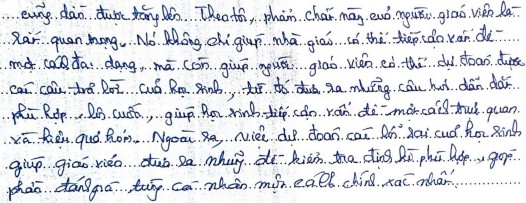 cũng dần được tăng lên. Theo tôi, phẩm chất này của người giáo viên là
rất quan trọng. Nó không chỉ giúp nhà giáo có thể tiếp cận vấn đề
một cách đa dạng, mà còn giúp người giáo viên có thể dự đoán được
các câu trả lời của học sinh, từ đó đưa ra những câu hỏi dẫn dắt
phù hợp, lôi cuốn, giúp học sinh tiếp cận vấn đề một cách trực quan
và hiệu quả hơn. Ngoài ra, việc dự đoán cái lỗi sai của học sinh
giúp giáo viên đưa ra những đề kiểm tra định kì phù hợp, góp
phần đánh giá từng cá nhân một cách chính xác nhất.